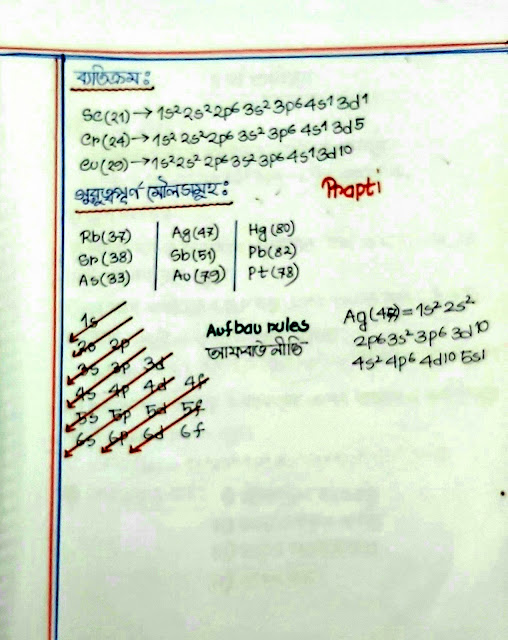 ব্যতিক্রম:
Sc(21) → 1s² 2s² 2p⁶ 3s² 3p⁶ 4s¹ 3d¹
Cr(24) → 1s² 2s² 2p⁶ 3s² 3p⁶ 4s¹ 3d⁵
Cu(29) → 1s² 2s² 2p⁶ 3s² 3p⁶ 4s¹ 3d¹⁰
গুরুত্বপূর্ণ মৌলসমূহ:
Prapti
Rb(37) Ag(47) Hg(80)
Sr(38) Sb(51) Pb(82)
As(33) Au(79) Pt(78)
1s
2s 2p
3s 3p 3d
4s 4p 4d 4f
5s 5p 5d 5f
6s 6p 6d 6f
Aufbau rules
আফবাউ নীতি
Ag(47) = 1s² 2s²
2p⁶ 3s² 3p⁶ 3d¹⁰
4s² 4p⁶ 4d¹⁰ 5s¹